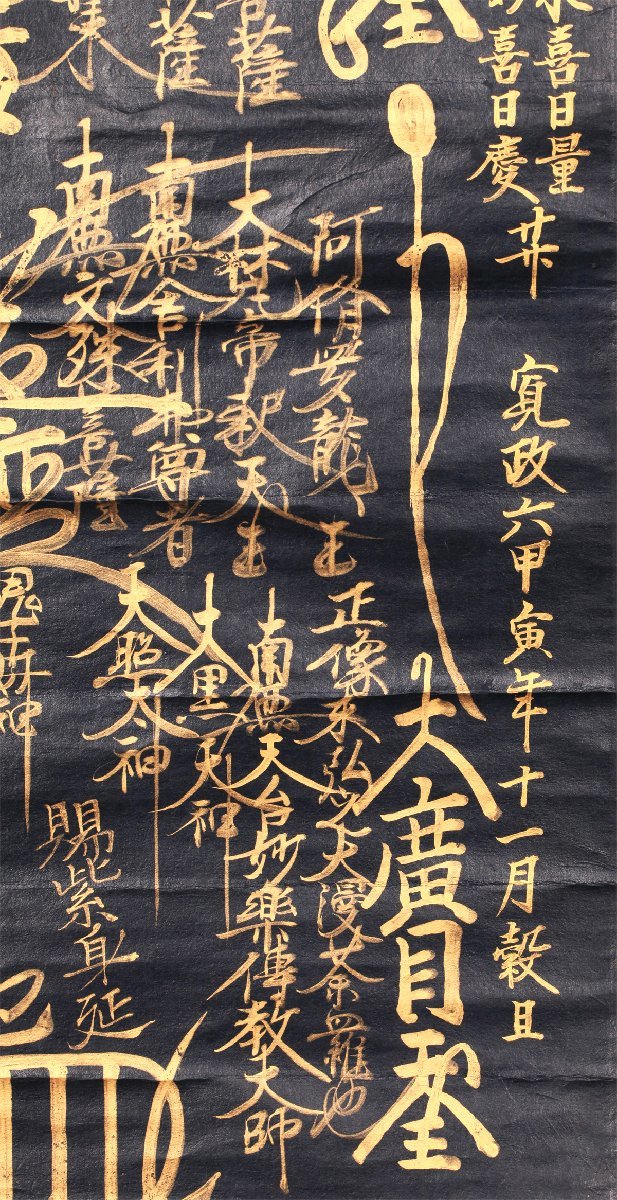 喜日量
喜日慶
寛政六甲寅年十一月穀旦
大廣目
阿脩羅龍王
正像未弘之大漫荼羅也
薩
大梵帝釈天王
南無天台妙樂傳教大師
薩
南無舎利弗尊者
大黒天神
来
南無文殊菩薩
天照太神
賜紫身延